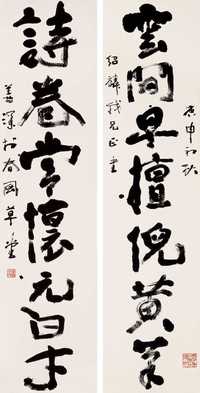 庚申初秋
雲間早擅倪黃筆
紹麟我兄正
詩卷常懷元白才
善深於春風草堂